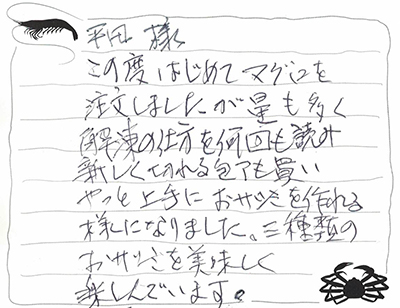 平田 様
この度はじめてマグロを
注文しましたが量も多く
解凍の仕方を何回も読み
新しく切れる包丁も買い
やっと上手におサシミを作れる
様になりました。三種類の
おサシミを美味しく
楽しんでいます。